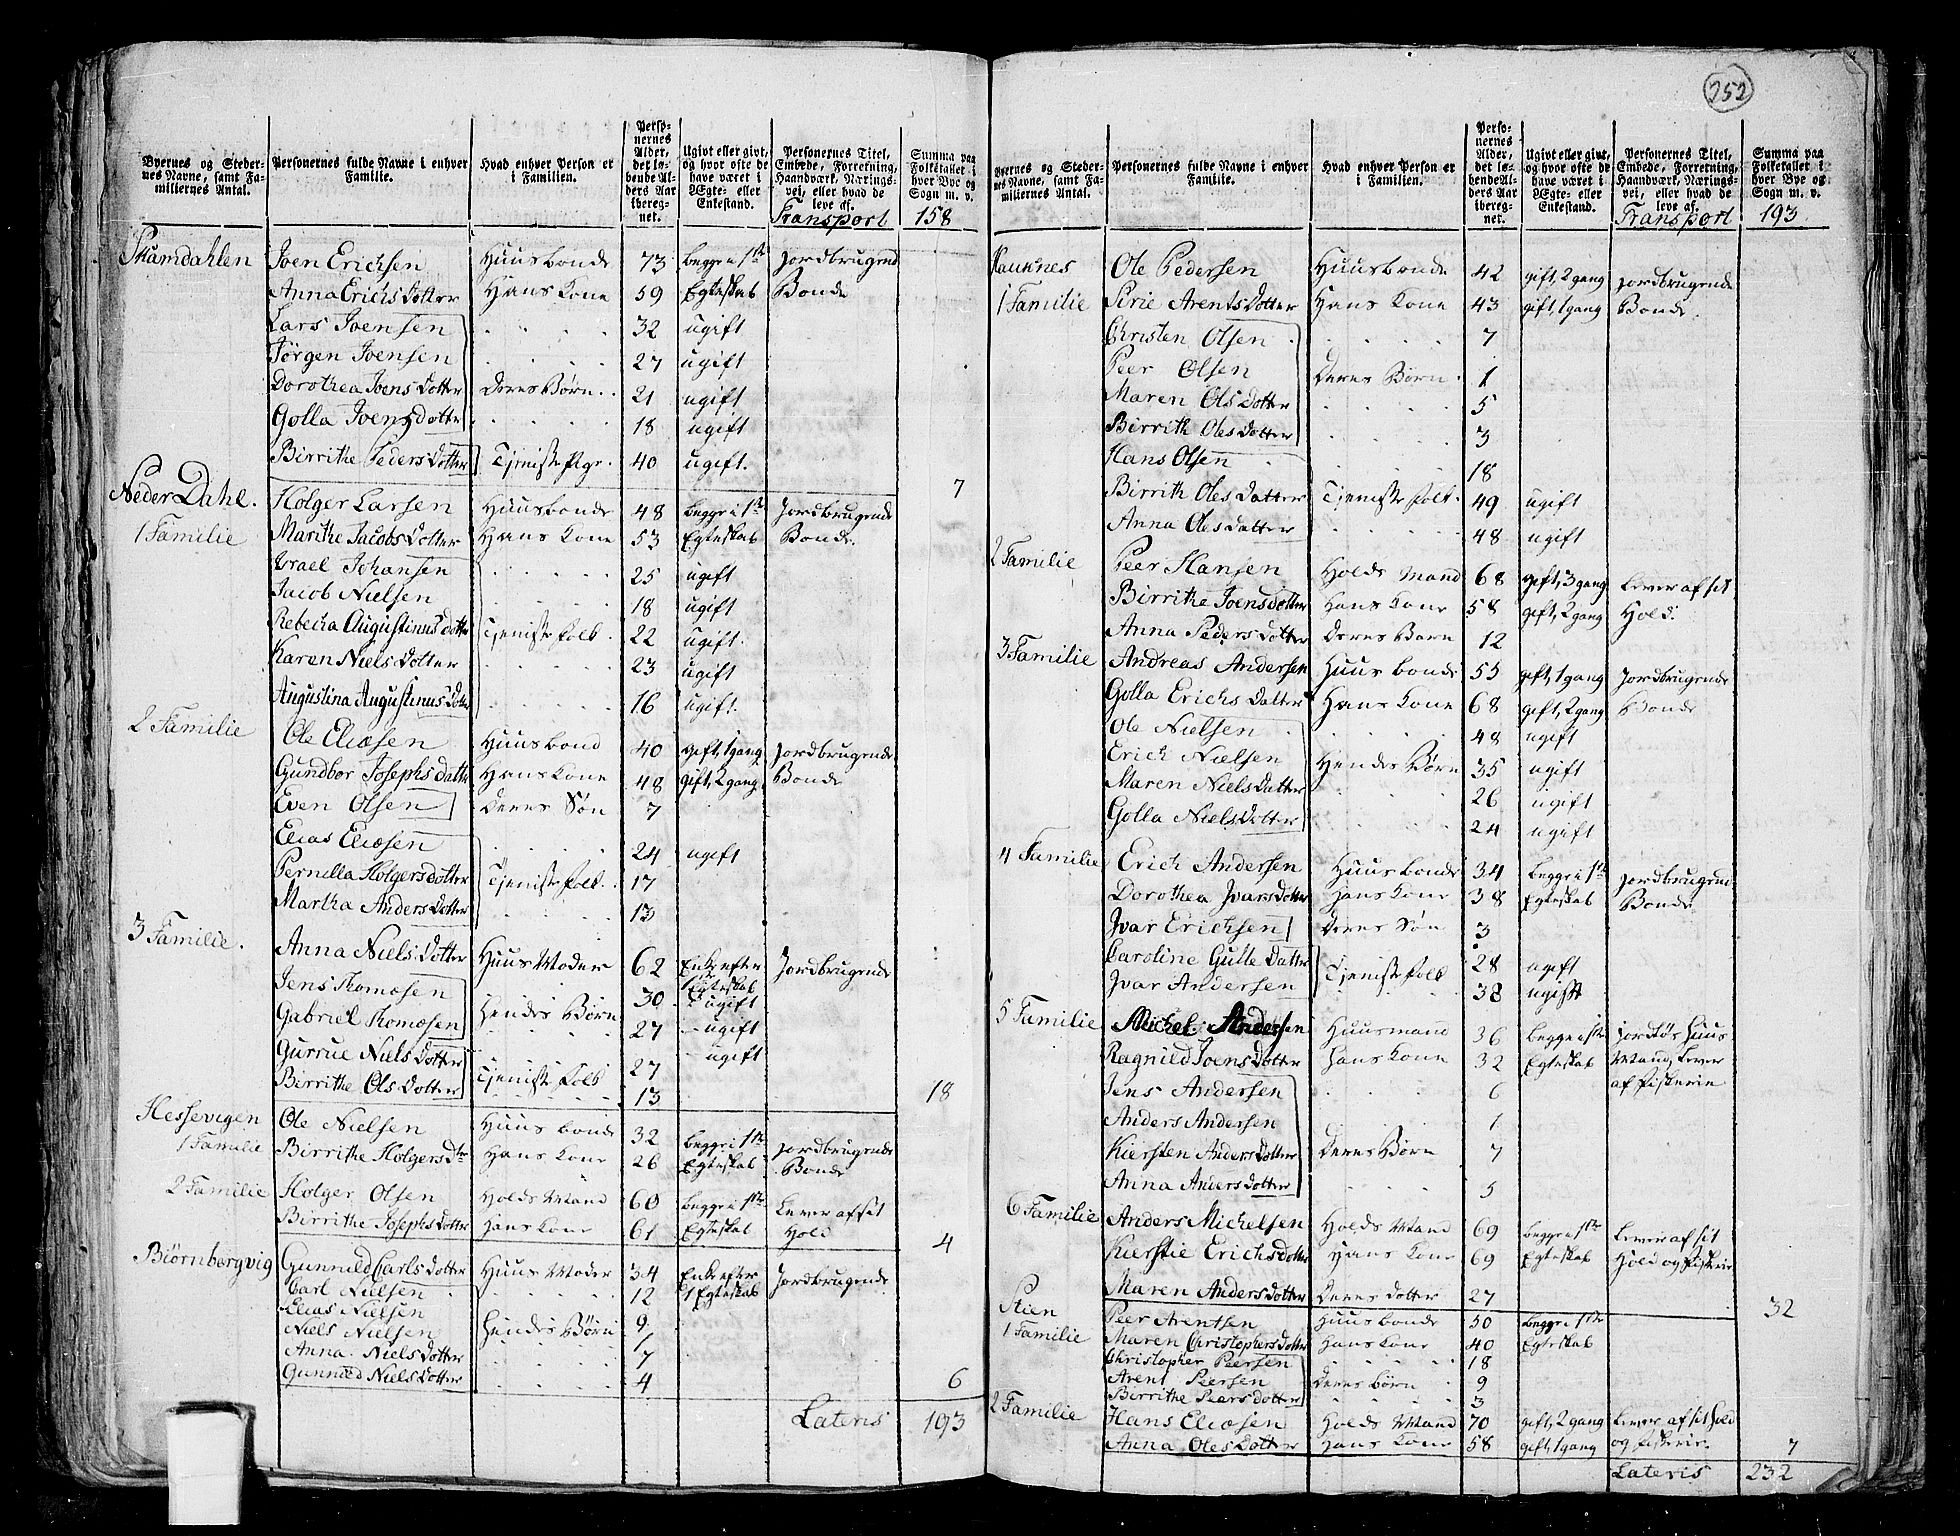 252
Byernes og Steder-
nes Navne, samt Fa-
miliernes Antal.
Personernes fulde Navne i enhver
Familie.
Hvad enhver Person er
i Familien.
Perso-
nernes
Alder,
det lø-
bende Al-
ders Aar
iberegnet.
Ugivt eller givt,
og hvor ofte de
have været i
Ægte- eller
Enkestand.
Personernes Titel,
Embede, Forretning,
Haandværk, Nærings-
vei, eller hvad de
leve af.
Summa paa
Folketallet i
hver Bye og
Sogn m. v.
Transport 158
Skamdahlen Joen Erichsen Huusbonde 73 begge i 1ste Jordbrugend
Anna Erichs Dotter Hans Kone 59 Egteskab Bonde
Lars Joensen 32 ugift
Jørgen Joensen 27 ugift
Dorothea Joens Dotter Deres Børn 21 ugift
Golla Joens dotter 18 ugift
Birrithe Peders Dotter Tjeniste Pige 40 ugift. 7
Neder Dahl. Holger Larsen Huusbonde 48 begge i 1ste Jordbrugende
1 Familie Marithe Jacobs Dotter Hans Kone 53 Egteskab Bonde.
Israel Johansen 25 ugift
Jacob Nielsen 18 ugift
Rebecka Augustinus dotter Tjeniste folk 22 ugift.
Karen Niels Dotter 23 ugift
Augustina Augustinus Dotter 16 ugift.
2 Familie Ole Eliæsen Huusbond 40 gift, 1 gang Jordbrugende
Gundbor Josephs datter Hans Kone 48 gift, 2 gang Bonde
Even Olsen Deres Søn 7
Elias Eliæsen 24 ugift
Pernilla Holgers dotter Tjeniste folk 17
Martha Anders Dotter 13
3 Familie. Anna Niels Dotter Huus Moder 62 Enke efter Jordbrugende
1 Egteskab
Jens Thomæsen 30 ugift
Gabriel Thomæsen Hendes Børn 27 ugift
Gurrue Niels Dotter 27 ugift
Birrithe Ols Dotter Tjeniste folk 13 18
Hessevigen Ole Nielsen Huus bonde 32 begge i 1ste Jordbrugende
1 Familie Birrithe Holgers Dtr Hans Kone 26 Egteskab Bonde
2 Familie Holger Olsen Holds Mand 60 begge i 1ste Lever af sit
Birrithe Josephs Dotter Hans Kone 61 Egteskab Hold 4
Biørnbergvig Gunnild Carls dotter Huus Moder 34 Enke efter Jordbrugende
Carl Nielsen 12 1 Egteskab
Elias Nielsen 9
Niels Nielsen Hendes Børn 1
Anna Niels Dotter 7
Gunnild Niels Dotter 4 6
Lateris 193
Byernes og Steder-
nes Navne, samt Fa-
miliernes Antal.
Personernes fulde Navne i enhver
Familie.
Hvad enhver Person er
i Familien.
Perso-
nernes
Alder,
det lø-
bende Al-
ders Aar
iberegnet.
Ugivt eller givt,
og hvor ofte de
have været i
Ægte- eller
Enkestand.
Personernes Titel,
Embede, Forretning,
Haandværk, Nærings-
vei, eller hvad de
leve af.
Summa paa
Folketallet i
hver Bye og
Sogn m. v.
Transport 193
Hauknes Ole Pedersen Huusbonde 42 gift, 2 gang Jordbrugende
1 Familie Sirie Arents Dotter Hans Kone 43 gift, 1 gang Bonde.
Christen Olsen 7
Peer Olsen Deres Børn 1
Maren Ols Dotter 5
Birrith Oles Datter 3
Hans Olsen 18
Birrith Oles Datter Tjeniste folk. 49 ugift
Anna Oles datter 48 ugift
2 Familie Peer Hansen Holds Mand 68 gift, 3 gang Lever af sit
Birrithe Joens dotter Hans Kone 58 gift, 2 gang Hold.
Anna Peders Dotter Deres Barn 12
3 Familie Andreas Andersen Huus bonde 55 gift, 1 gang Jordbrugende
Golla Erichs Datter Hans Kone 68 gift, 2 gang Bonde
Ole Nielsen 48 ugift
Erich Nielsen Hendes Børn 35 ugift
Maren Niels Datter 26 ugift
Golla Niels Dotter 24 ugift
4 Familie Erich Andersen Huusbonde 34 begge i 1ste Jordbrugend
Dorothea Ivars Dotter Hans Kone 38 Egteskab Bonde
Ivar Erichsen Deres Søn 3
Caroline Gulle Datter Tjeniste folk 28 ugift
Ivar Andersen 32 ugift
5 Familie Michel Andersen Huusmand 36 begge i 1ste Jordløs Huus
Ragnild Joens Dotter Hans Kone 32 Egteskab Mand, Lever
Jens Andersen 6 af fiskerie
Anders Andersen 1
Kiersten Anders Dotter Deres Børn 7
Anna Anders dotter 5
6 Familie Anders Michelsen Holds Mand 69 begge i 1ste Lever af sit
Kierstie Erichs dotter Hans Kone 69 Egteskab Hold og fiskerie
Maren Anders dotter Deres Dotter 27 32
Stien Peer Arentsen Huus bonde 50 begge i 1ste
1 Familie Maren Christophers Dotter Hans Kone 40 Egteskab
Christopher Peersen 18
Arent Peersen Deres børn 9
Birrithe Peers dotter 3
2 Familie Hans Eliæsen Holds Mand 70 gift, 2 gang Lever af sit hold
Anna Oles Dotter Hans Kone 58 gift, 1 gang og fiskerie. 7
Lateris 232